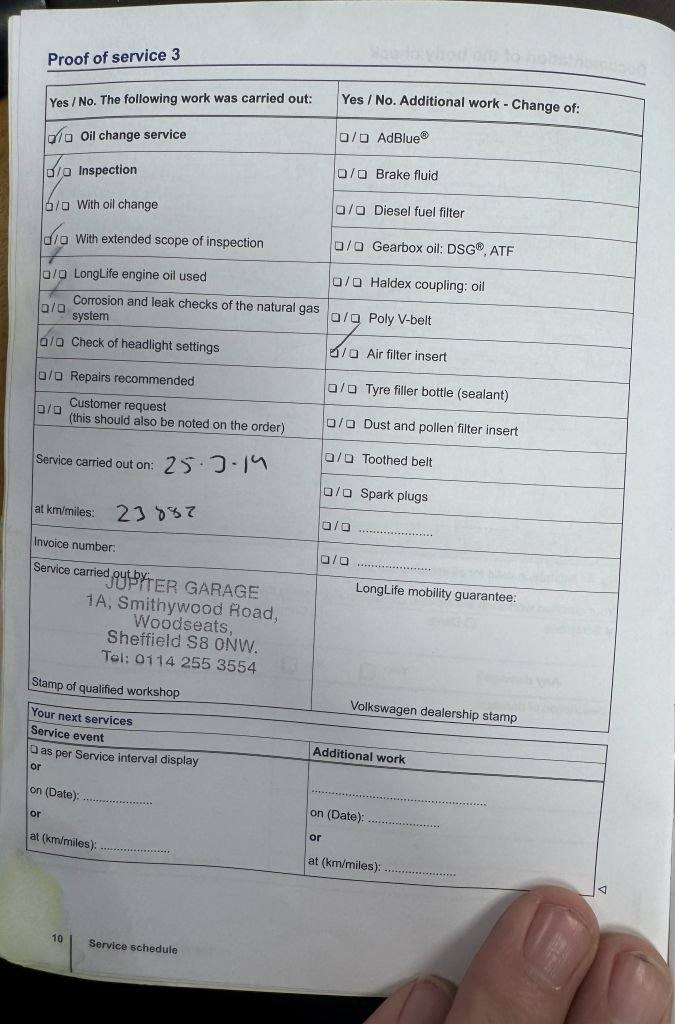 Proof of service 3
Yes / No. The following work was carried out:
❑/❑ Oil change service
❑/❑ Inspection
❑/❑ With oil change
❑/❑ With extended scope of inspection
❑/❑ LongLife engine oil used
❑/❑ Corrosion and leak checks of the natural gas
system
❑/❑ Check of headlight settings
❑/❑ Repairs recommended
❑/❑ Customer request
(this should also be noted on the order)
Service carried out on: 25.7.19
at km/miles: 23882
Invoice number:
Service carried out by:
JUPITER GARAGE
1A, Smithywood Road,
Woodseats,
Sheffield S8 0NW.
Tel: 0114 255 3554
Stamp of qualified workshop
Yes / No. Additional work - Change of:
❑/❑ AdBlue®
❑/❑ Brake fluid
❑/❑ Diesel fuel filter
❑/❑ Gearbox oil: DSG®, ATF
❑/❑ Haldex coupling: oil
❑/❑ Poly V-belt
❑/❑ Air filter insert
❑/❑ Tyre filler bottle (sealant)
❑/❑ Dust and pollen filter insert
❑/❑ Toothed belt
❑/❑ Spark plugs
❑/❑ .....................
❑/❑ .....................
LongLife mobility guarantee:
Volkswagen dealership stamp
Your next services
Service event
❑ as per Service interval display
or
on (Date): ....................
or
at (km/miles): ....................
Additional work
..................................................
on (Date): ....................
or
at (km/miles): ....................
10
Service schedule